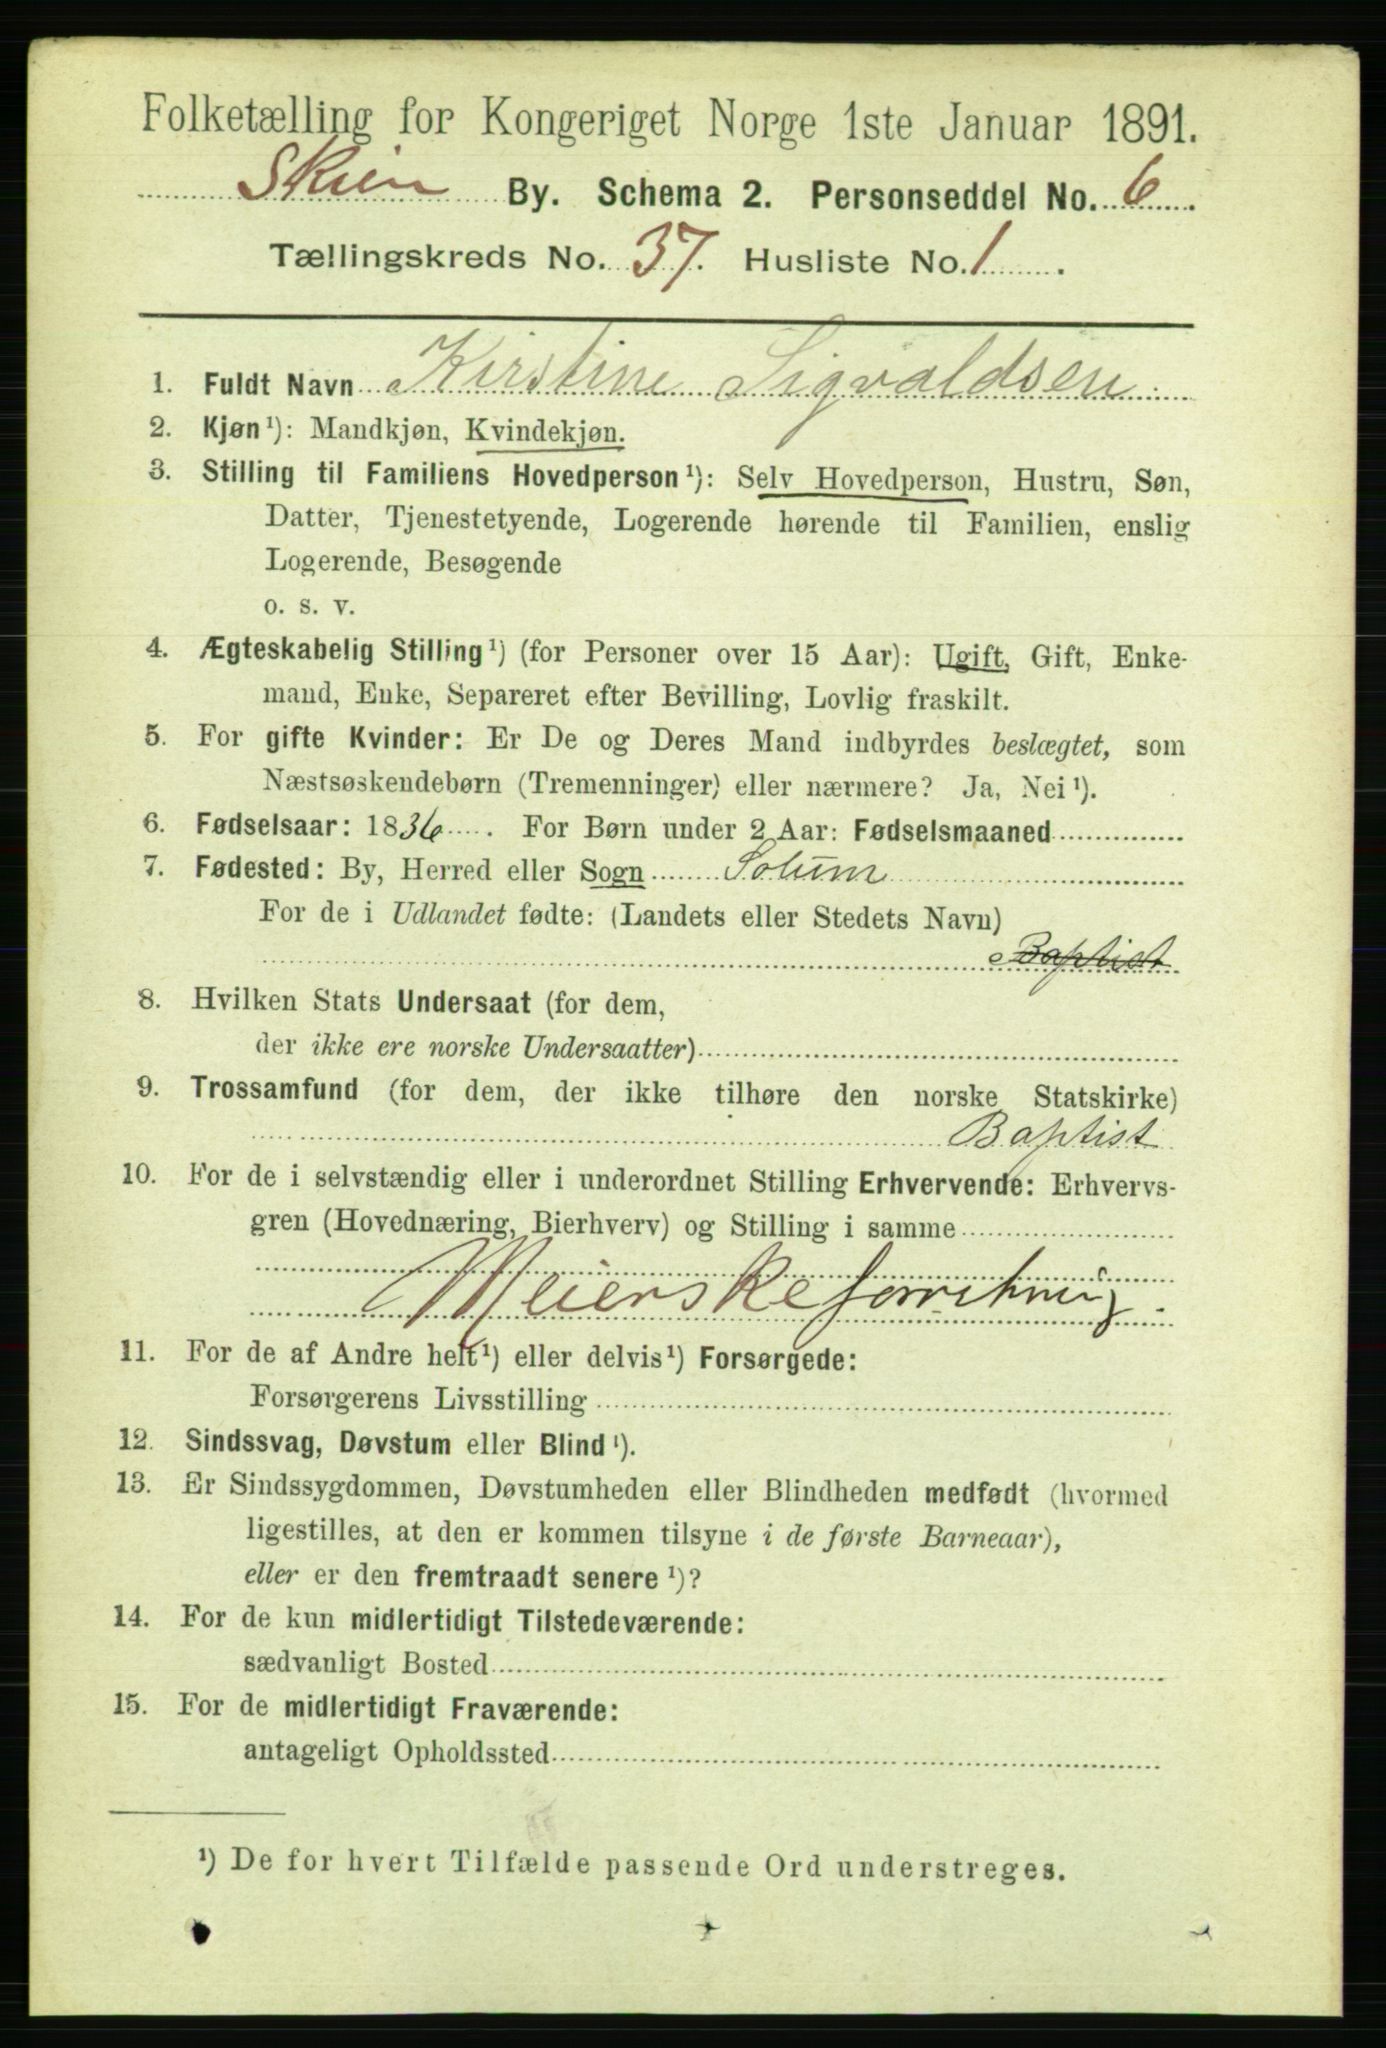 Folketælling for Kongeriget Norge 1ste Januar 1891.
Skien By. Schema 2. Personseddel No. 6.
Tællingskreds No. 37. Husliste No. 1.
1. Fuldt Navn Kirstine Sigvaldsen
2. Kjøn¹): Mandkjøn, Kvindekjøn.
3. Stilling til Familiens Hovedperson¹): Selv Hovedperson, Hustru, Søn,
Datter, Tjenestetyende, Logerende hørende til Familien, enslig
Logerende, Besøgende
o. s. v.
4. Ægteskabelig Stilling¹) (for Personer over 15 Aar): Ugift, Gift, Enke-
mand, Enke, Separeret efter Bevilling, Lovlig fraskilt.
5. For gifte Kvinder: Er De og Deres Mand indbyrdes beslægtet, som
Næstsøskendebørn (Tremenninger) eller nærmere? Ja, Nei¹).
6. Fødselsaar: 1836. For Børn under 2 Aar: Fødselsmaaned
7. Fødested: By, Herred eller Sogn Solum
For de i Udlandet fødte: (Landets eller Stedets Navn)
Baptist
8. Hvilken Stats Undersaat (for dem,
der ikke ere norske Undersaatter)
9. Trossamfund (for dem, der ikke tilhøre den norske Statskirke)
Baptist
10. For de i selvstændig eller i underordnet Stilling Erhvervende: Erhvervs-
gren (Hovednæring, Bierhverv) og Stilling i samme
Meierskeforretning.
11. For de af Andre helt¹) eller delvis¹) Forsørgede:
Forsørgerens Livsstilling
12. Sindssvag, Døvstum eller Blind¹).
13. Er Sindssygdommen, Døvstumheden eller Blindheden medfødt (hvormed
ligestilles, at den er kommen tilsyne i de første Barneaar),
eller er den fremtraadt senere¹)?
14. For de kun midlertidigt Tilstedeværende:
sædvanligt Bosted
15. For de midlertidigt Fraværende:
antageligt Opholdssted
¹) De for hvert Tilfælde passende Ord understreges.